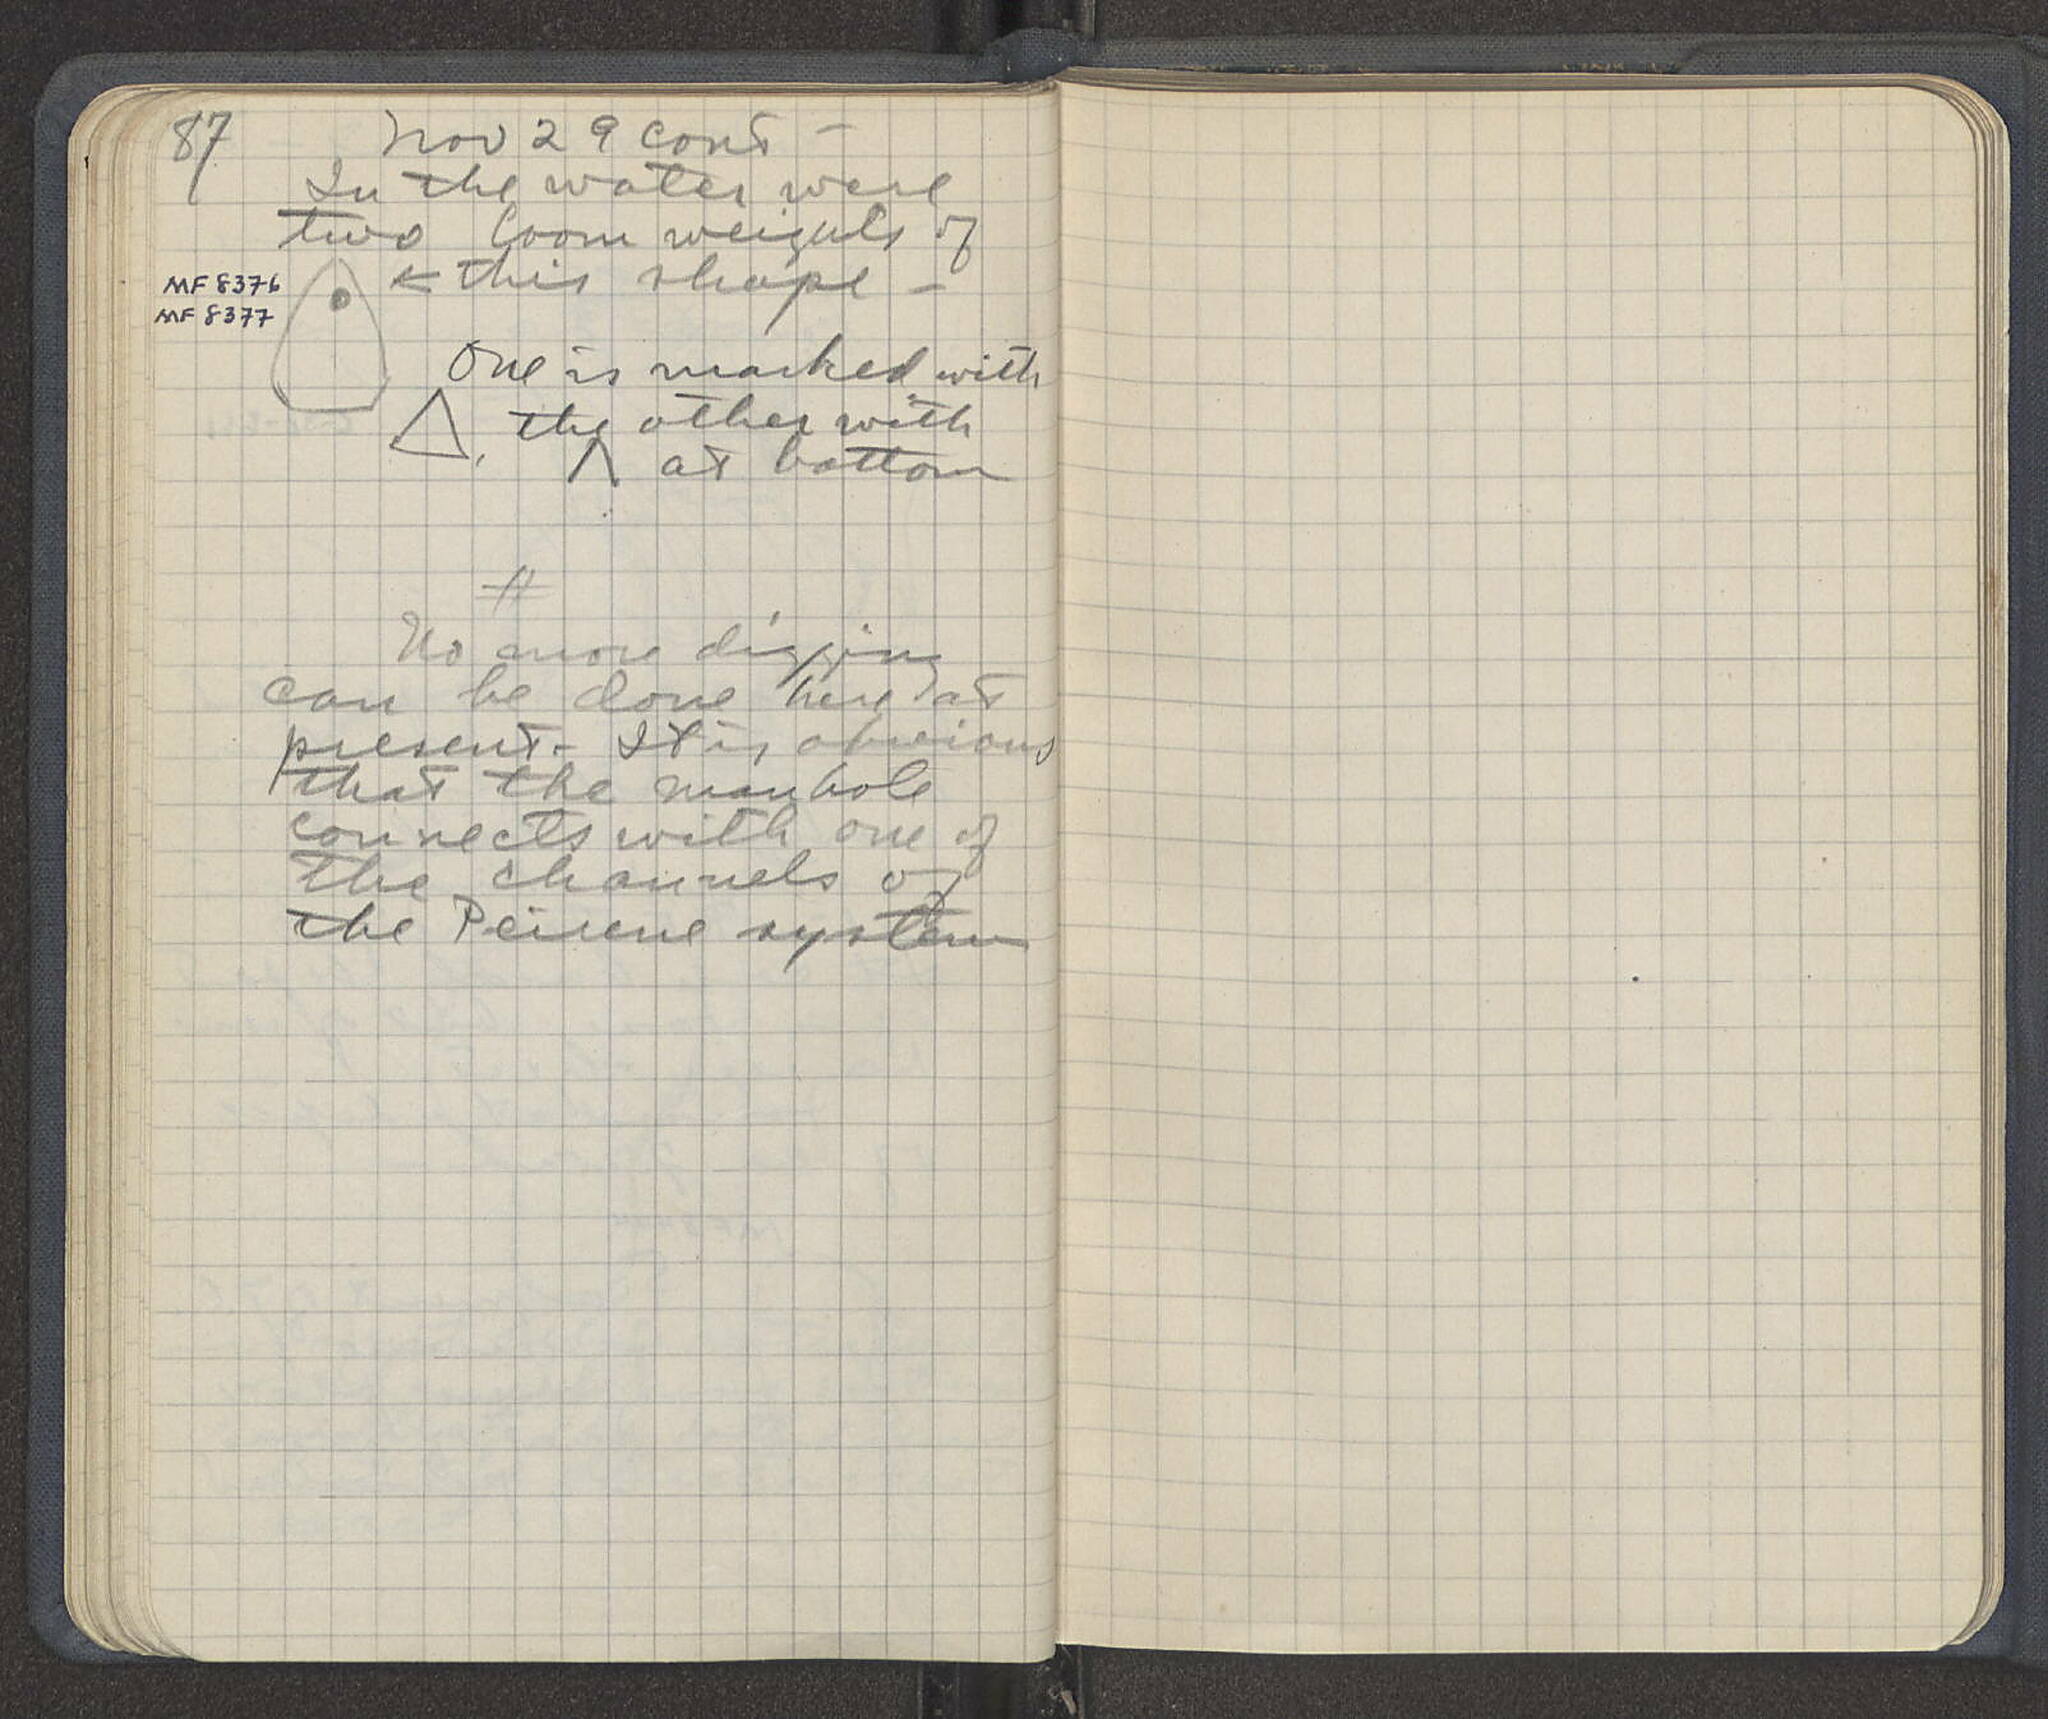 87
Nov 29 cont -
In the water were
two loom weights of
← this shape -
MF 8376
MF 8377
One is marked with
△, the other with
Λ at bottom
#
No more digging
can be done here at
present - It is obvious
that the manhole
connects with one of
the channels of
the Peirene system